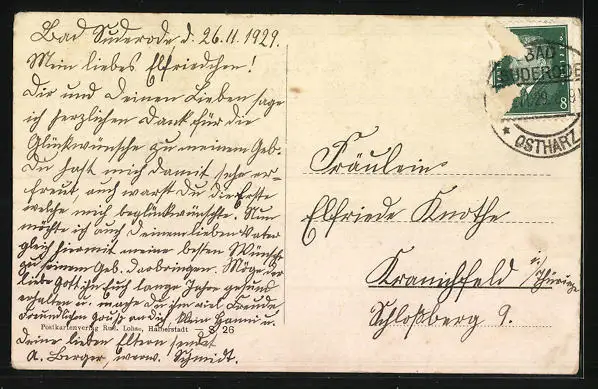 Bad Suderode d. 26.11.1929.
Mein liebes Elfriedchen!
Dir und Deinen Lieben sage
ich herzlichen Dank für die
Glückwünsche zu meinem Geb.
Du hast mich damit sehr er-
freut, auch warst Du die Erste
welche mich beglückwünschte. Nun
möchte ich auch Deinem lieben Vater
gleich hiermit meine besten Wünsche
zu seinem Geb. darbringen. Möge der
liebe Gott ihn Euch lange Jahre gesund
erhalten u. mache Du ihm viel Freude
Freundlichen Gruß an dich, Wwe Hanni u.
Deine lieben Eltern sendet
A. Berger, verw. Schmidt.
Postkartenverlag Rud. Lohse, Halberstadt — S 26
8
BAD
SUDERODE
* OSTHARZ
Fräulein
Elfriede Knothe
Kranichfeld i/Thüringen
Schloßberg 9.